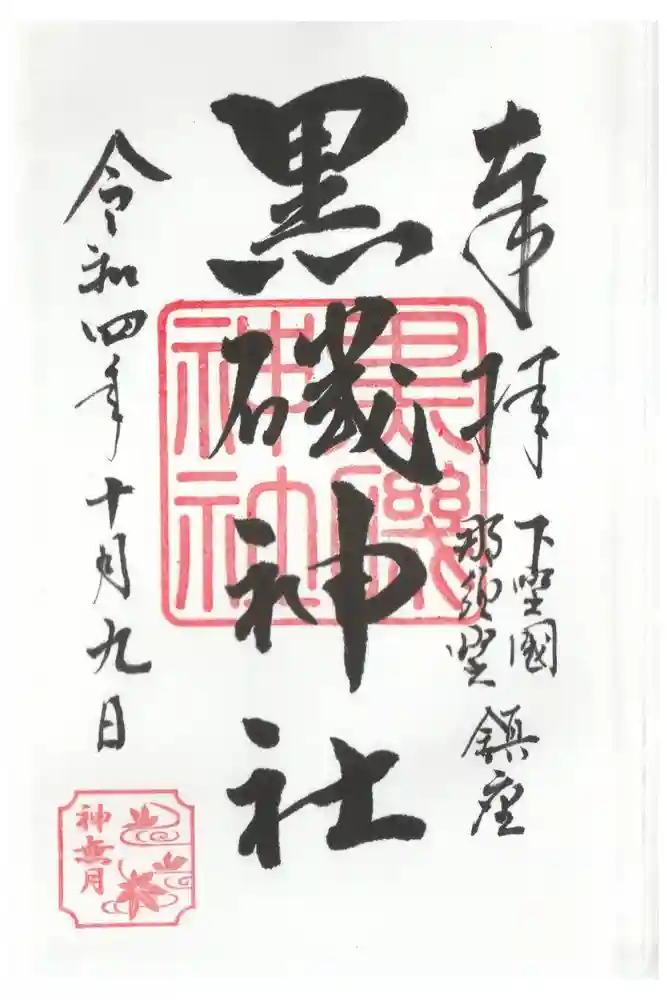 奉拝
下埜國
那須埜
鎮座
黒磯神社
黒磯
神社
令和四年十月九日
神無月